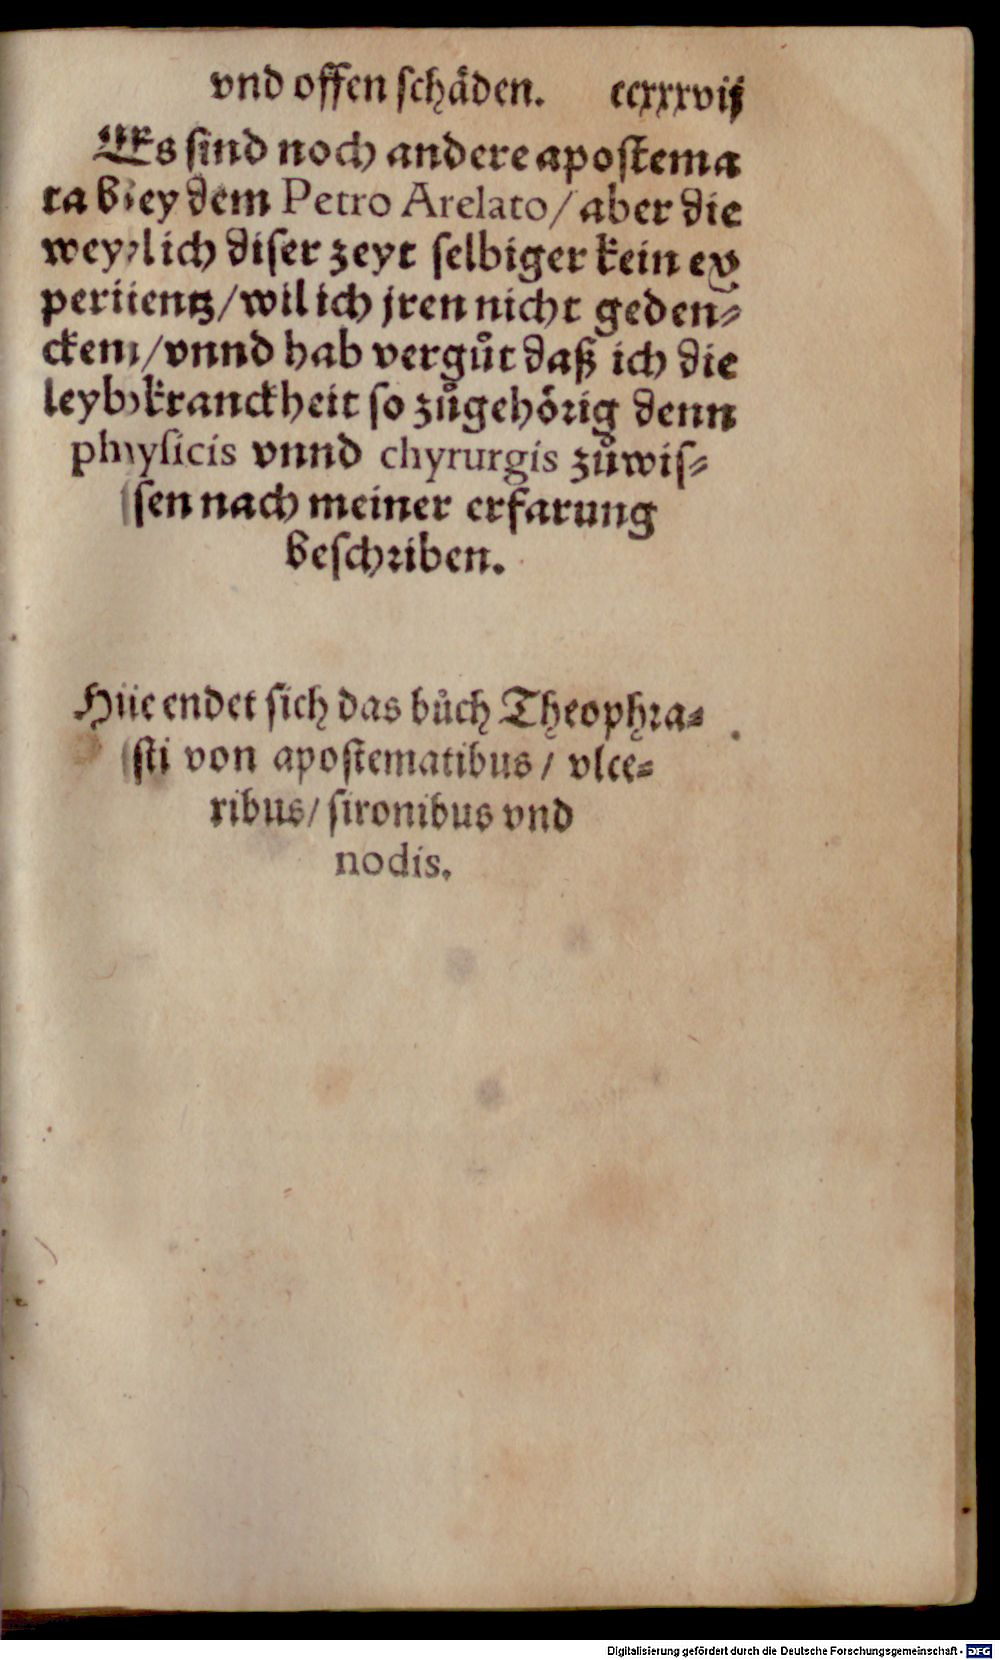 vnd offen schäden. ccxxxvij
Es sind noch andere apostema
ta bey dem Petro Arelato / aber die
weyl ich diser zeyt selbiger kein ex
perientz / wil ich jren nicht geden-
cken / vnnd hab vergůt daß ich die
leybkranckheit so zůgehörig denn
physicis vnnd chyrurgis zůwis-
sen nach meiner erfarung
beschriben.
Hie endet sich das bůch Theophra-
sti von apostematibus / vlce-
ribus / sironibus vnd
nodis.
Digitalisierung gefördert durch die Deutsche Forschungsgemeinschaft - DFG